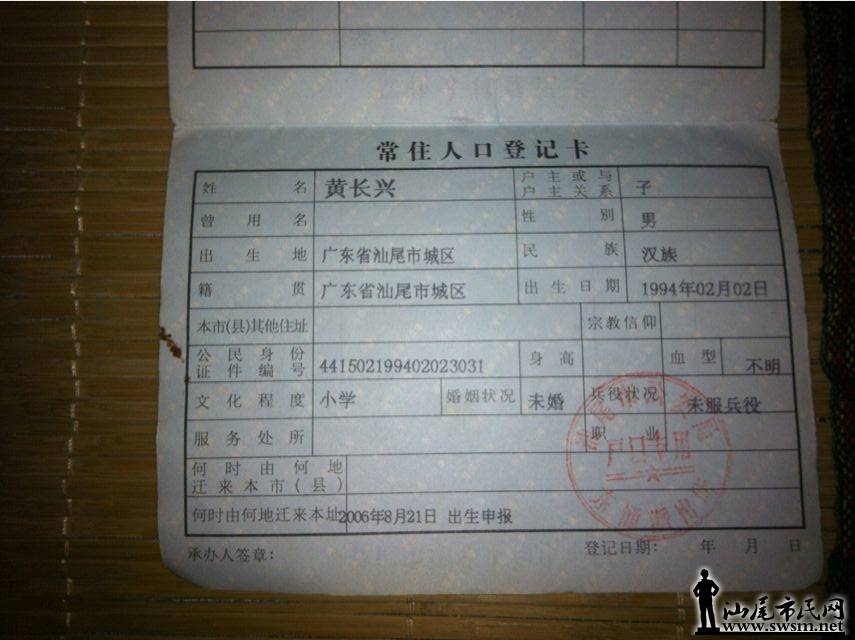 常住人口登记卡
姓名 黄长兴 户主或与户主关系 子
曾用名 性别 男
出生地 广东省汕尾市城区 民族 汉族
籍贯 广东省汕尾市城区 出生日期 1994年02月02日
本市(县)其他住址 宗教信仰
公民身份证件编号 441502199402023031 身高 血型 不明
文化程度 小学 婚姻状况 未婚 兵役状况 未服兵役
服务处所 职业
户口专用
何时由何地迁来本市(县)
何时由何地迁来本址 2006年8月21日 出生申报
承办人签章: 登记日期: 年 月 日
汕尾市民网
www.swsm.net